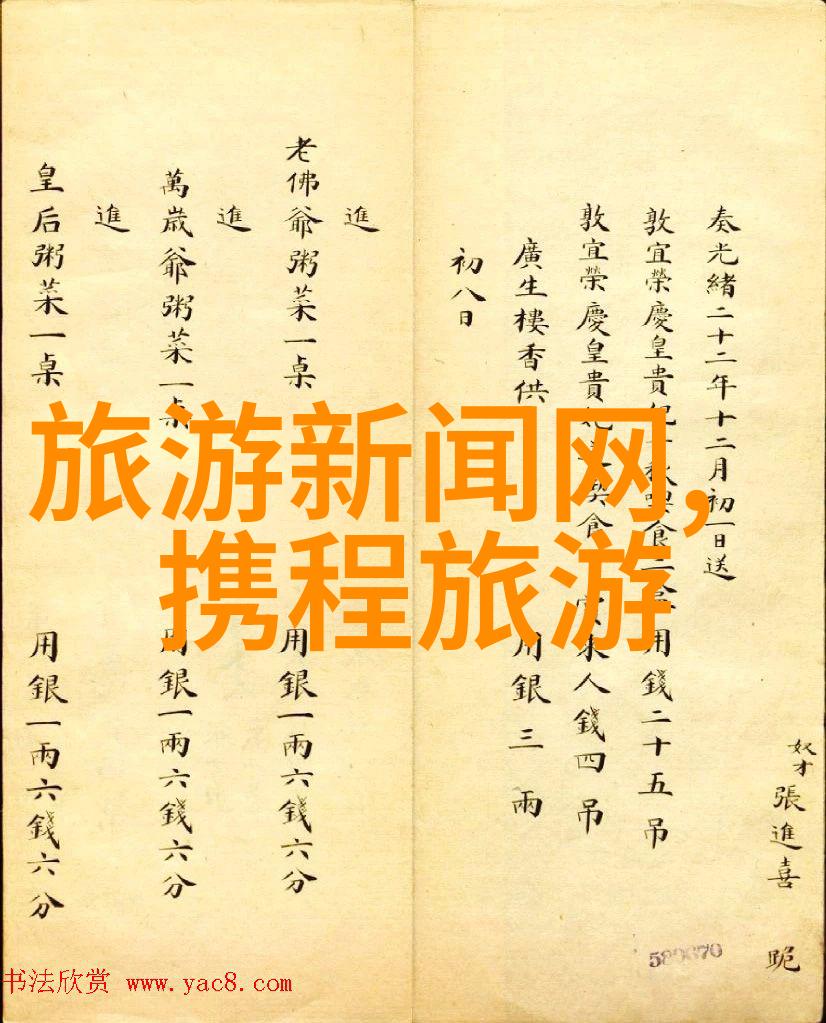 奴才張進喜 跪
奏光緒二十二年十二月初一日送
敦宜榮慶皇貴 食 用錢二十五吊
敦宜榮慶皇貴 食 來人錢四吊
廣生樓香供 用銀三兩
初八日
進
老佛爺粥菜一桌 用銀一兩六錢六分
進
萬歲爺粥菜一桌 用銀一兩六錢六分
進
皇后粥菜一桌 用銀一兩六錢六分
旅游新闻网,
携程旅游
书法欣赏 www.yac8.com